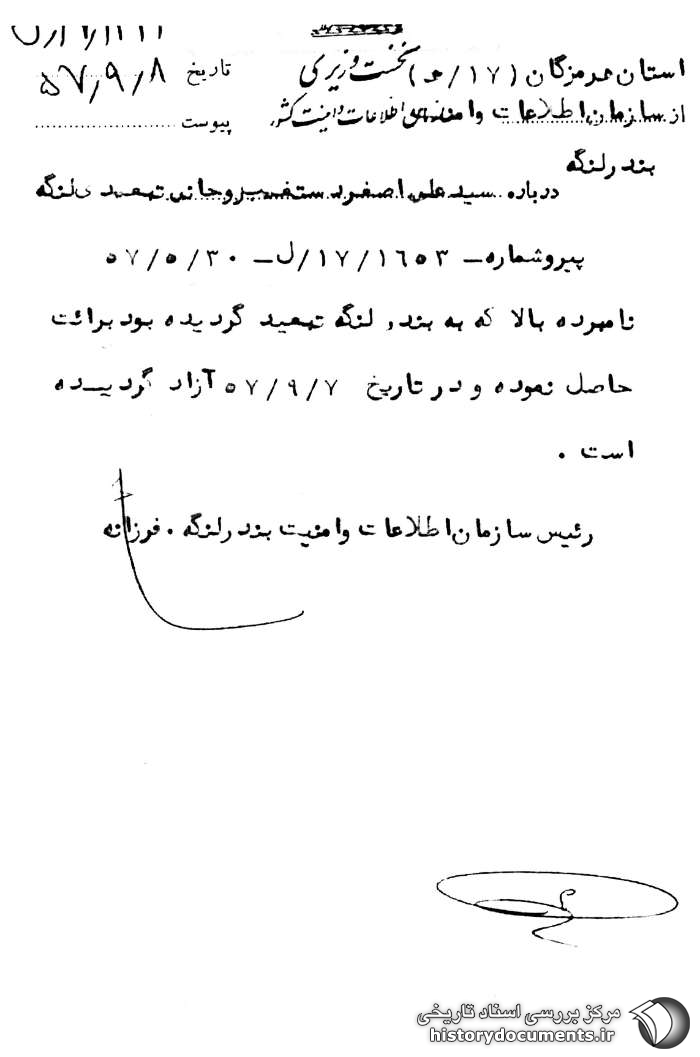 نخست وزیری
سازمان اطلاعات و امنیت کشور
استان هرمزگان (۱۷/ه)
از سازمان اطلاعات و امنیت
بندرلنگه
تاریخ ۵۷/۹/۸
پیوست
درباره سید علی اصغر دستغیب روحانی تبعیدی لنگه
پیرو شماره – ۱۷/۱۶۵۳/ل – ۵۷/۵/۳۰
نامبرده بالا که به بندر لنگه تبعید گردیده بود برائت
حاصل نموده و در تاریخ ۵۷/۹/۷ آزاد گردیده
است .
رئیس سازمان اطلاعات و امنیت بندرلنگه . فرزانه
مرکز بررسی اسناد تاریخی
historydocuments.ir